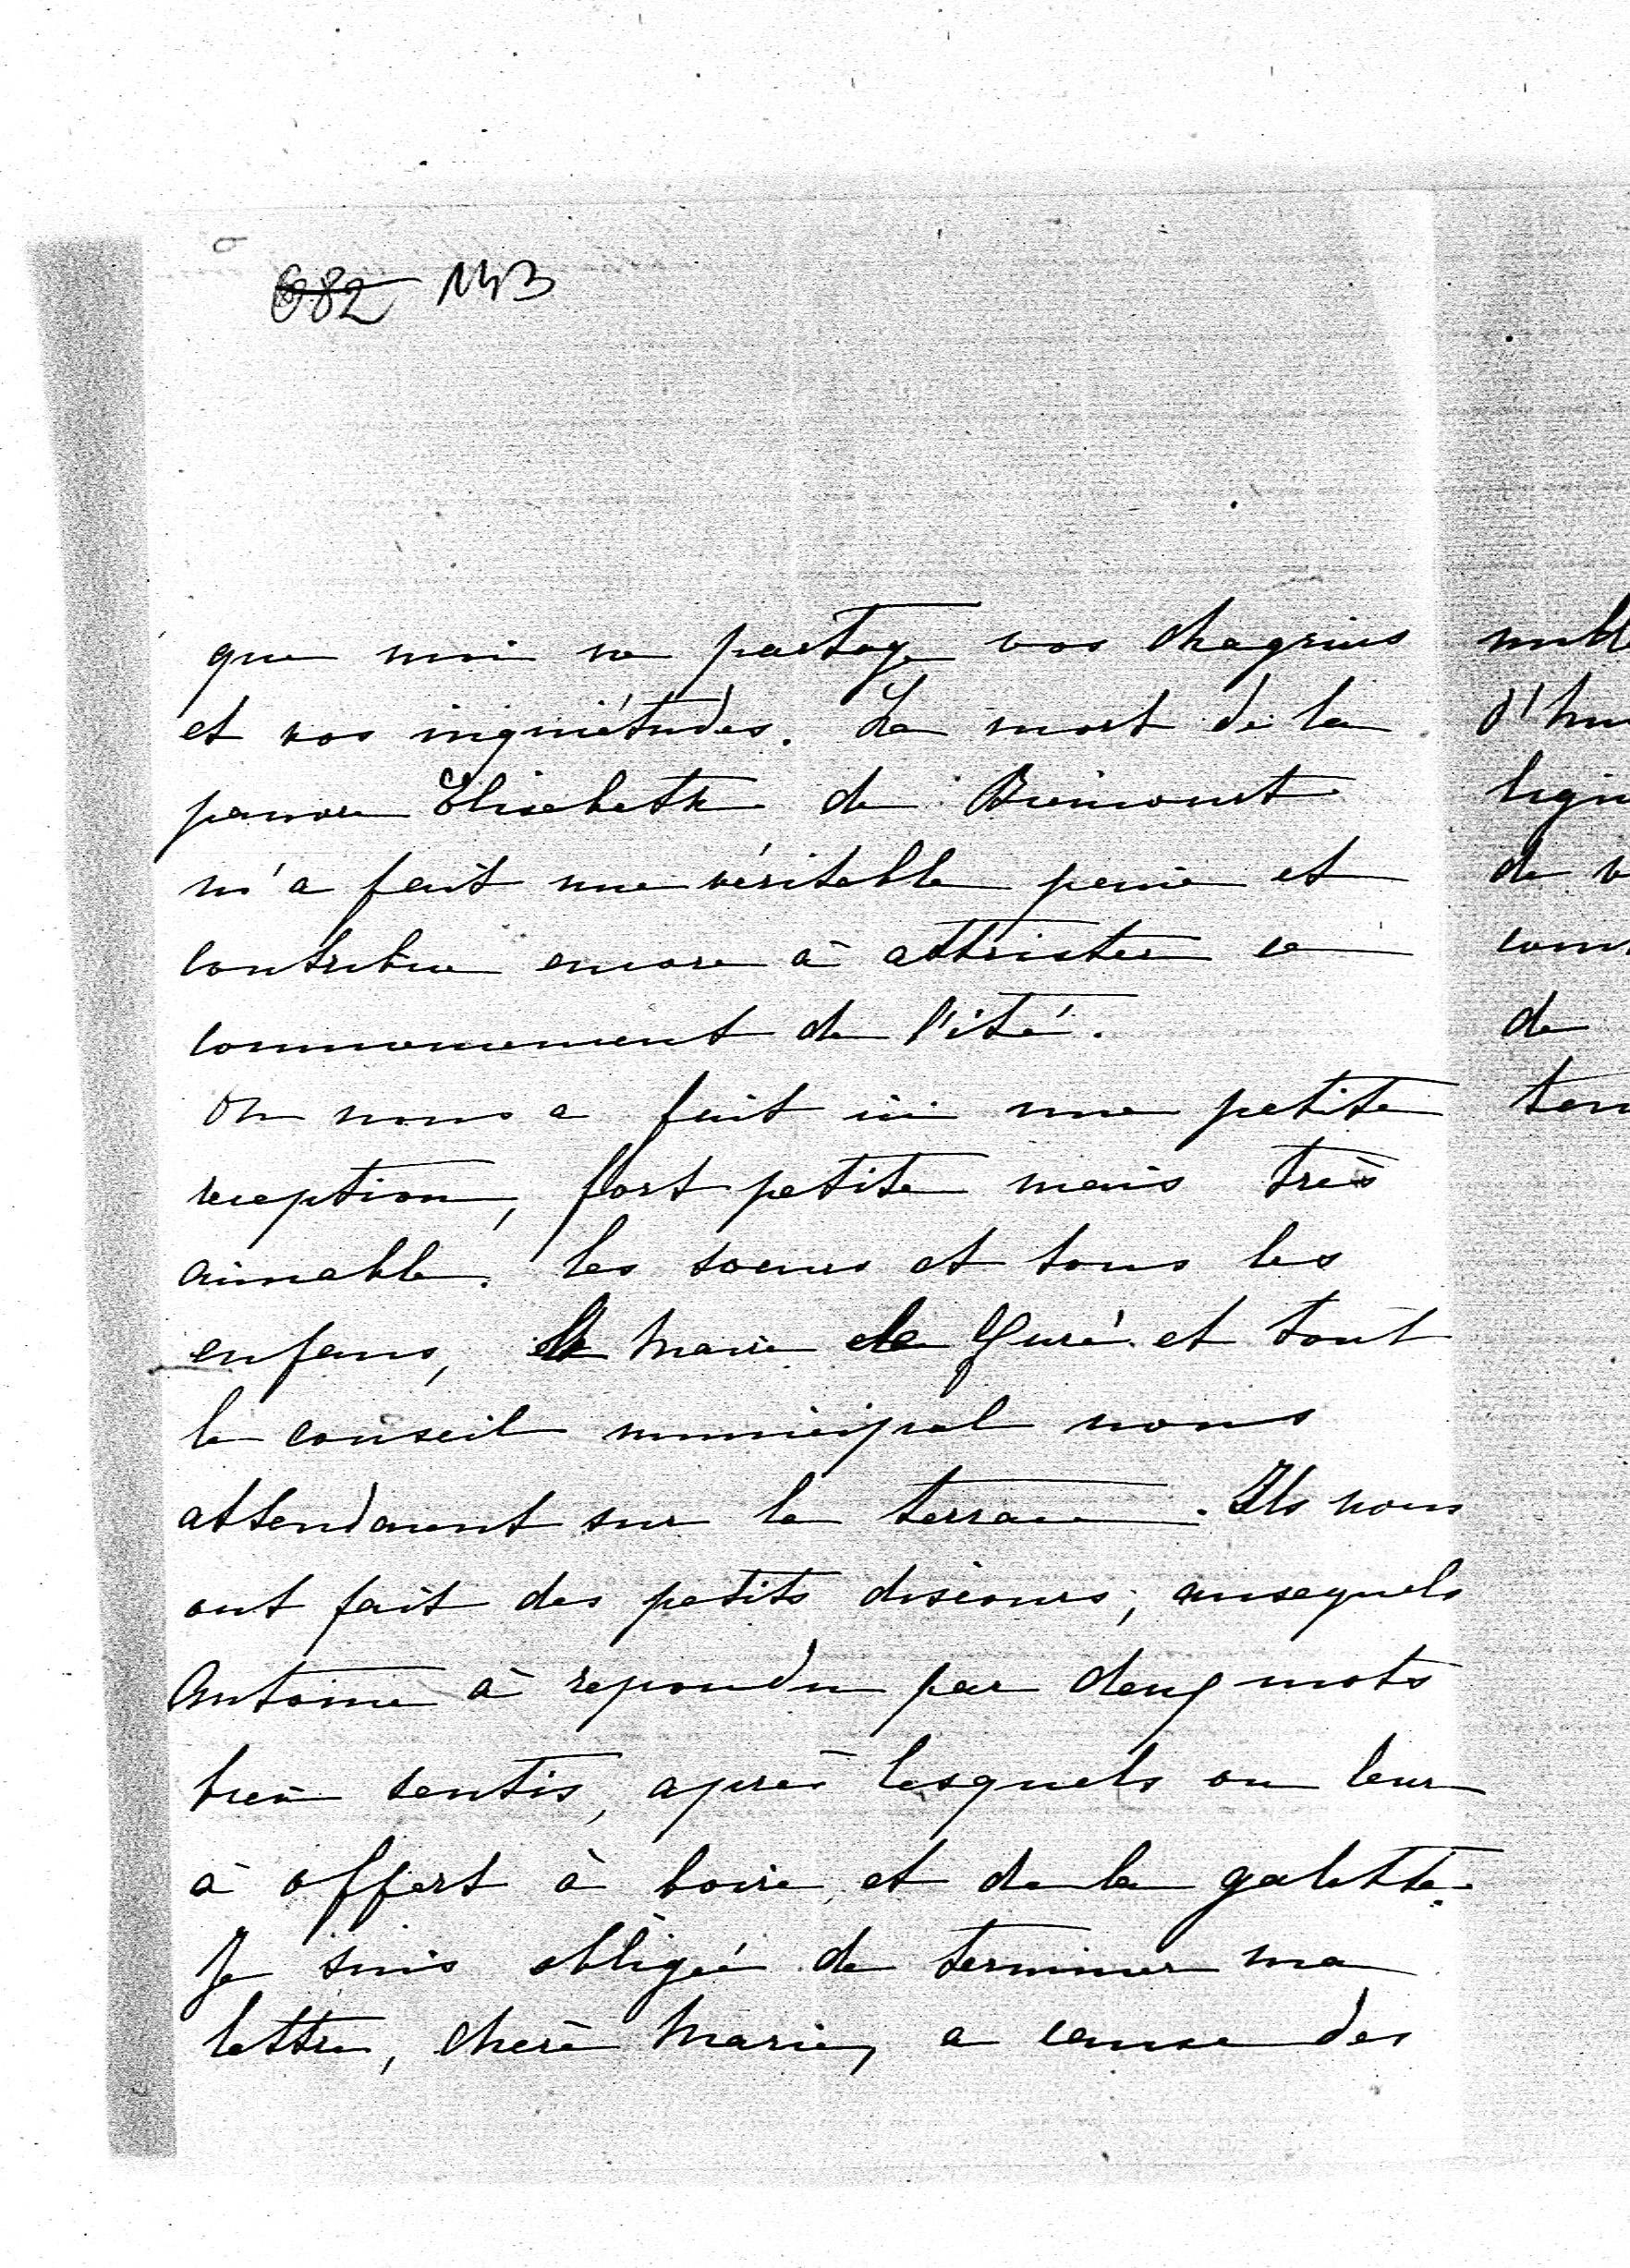 682 1143
que moi ne partage vos chagrins
et vos inquiétudes. La mort de la
pauvre Elisabeth de
m'a fait une véritable peine et
contribue encore à attrister ce
commencement de l'été.
On nous a fait ici une petite
reception, fort petite mais très
aimable. les soeurs et tous les
enfans, le Maire le Curé et tout
le conseil municipal nous
attendaient sur la terrasse. Ils nous
ont fait des petits discours, auxquels
Antoine à repondu par deux mots
bien sentis, après lesquels on leur
à offert à boire et de la galette.
Je suis obligée de terminer ma
lettre, chère Marie, a cause des
d'hu
de v
de